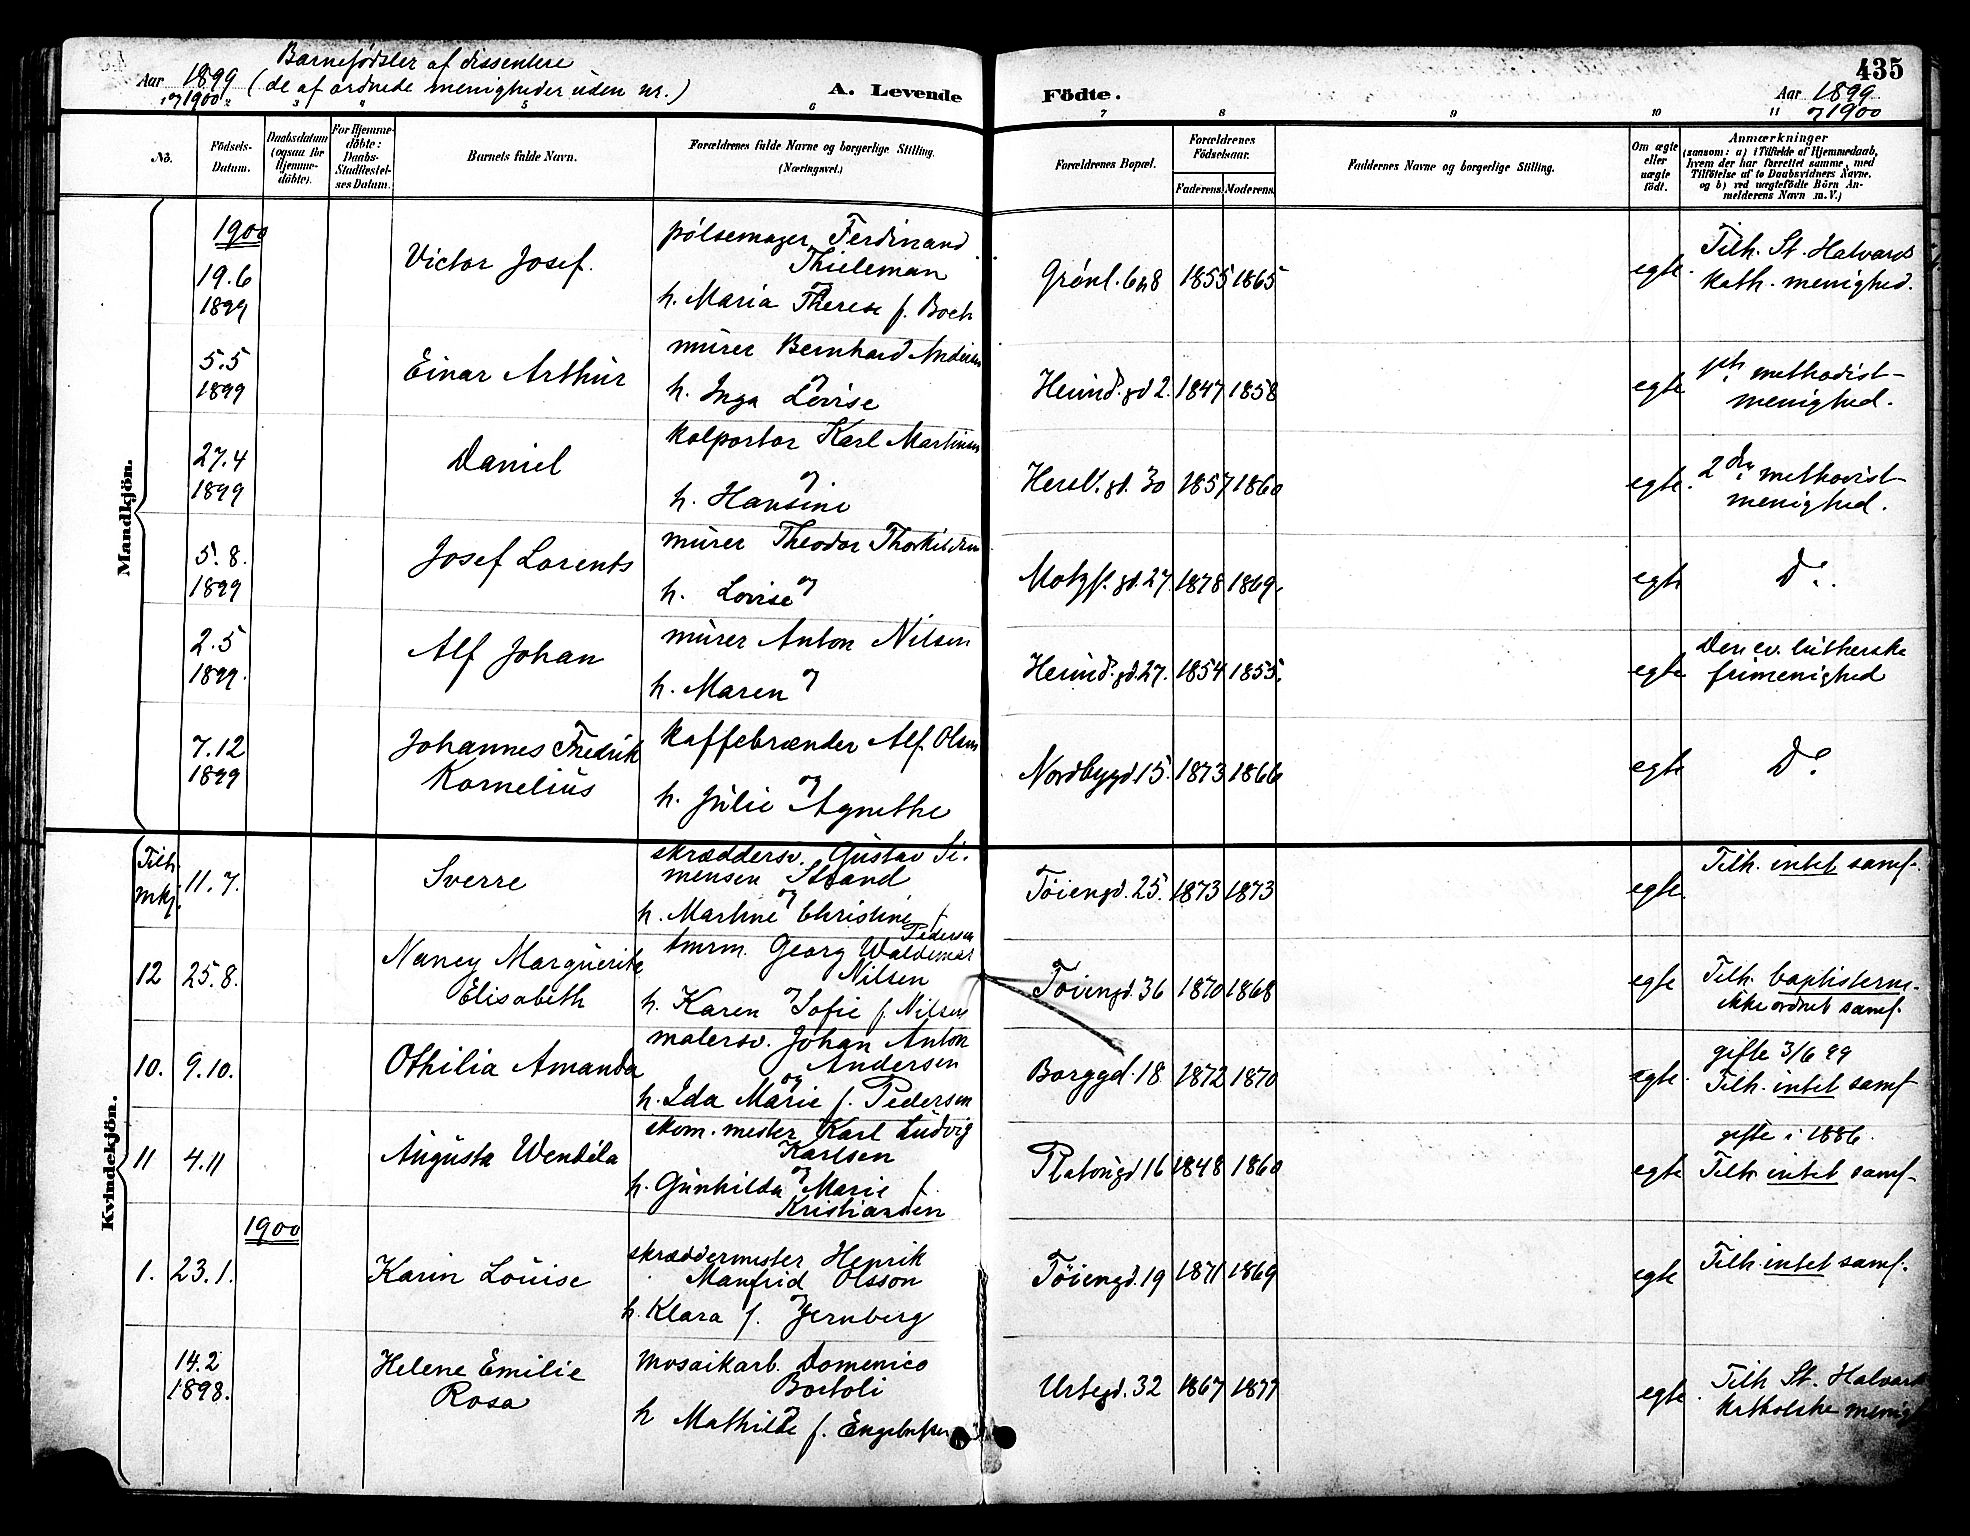 Barnefödsler af dissentere
Aar 1899 (de af ordnede menigheder uden nr.)
og 1900
A. Levende Födte.
435
Aar 1899
og 1900
3 4 5 6 7 8 9 10 11
No.
Födsels-Datum.
Daabsdatum (ogsaa for Hjemme-döbte).
For Hjemme-döbte: Daabs-Stadfæstel-ses Datum.
Barnets fulde Navn.
Forældrenes fulde Navne og borgerlige Stilling. (Næringsvei.)
Forældrenes Bopæl.
Forældrenes Födselsaar.
Faderens. Moderens.
Faddernes Navne og borgerlige Stilling.
Om ægte eller uægte födt.
Anmærkninger
(saasom: a) i Tilfælde af Hjemmedaab, hvem der har forrettet samme, med Tilföielse af to Daabsvidners Navne, og b) ved uægtefödte Börn An-melderens Navn m. V.)
Mandkjön.
1900
19.6
1899
Victor Josef.
pölsemager Ferdinand
Thieleman
og
h. Maria Therese f. Boch
Grönl. 6 n 8 1855 1865
egte.
Tilh. St. Halvards
kath. menighed.
5.5
1899
Einar Arthur
murer Bernhard Andersen
og
h. Inga Lovise
Heimd. gd 2. 1847 1858
egte
1ste methodist-
menighed.
27.4
1899
Daniel
kolportør Karl Martinsen
og
h. Hansine
Hersl. gd. 30 1857 1860
egte.
2den methodist-
menighed.
5.8.
1899
Josef Lorents
murer Theodor Thorkildsen
og
h. Lovise
Motzf. gd. 27 1878 1869.
egte
Do.
2.5
1899.
Alf Johan
murer Anton Nilsen
og
h. Maren
Heimd. gd. 27. 1854 1855.
egte
Den ev. lutherske
frimenighed
7.12
1899
Johannes Fredrik
Kornelius
kaffebrænder Alf. Olsen
og
h. Julie Agnethe
Nordbygd 15. 1873 1866
egte
Do
Kvindekjön.
Tilh.
mkj.
11.7.
Sverre
skræddersv. Gustav Si-
mensen Strand
og
h. Martine Christine f.
Pedersen
Töiengd. 25. 1873 1873
egte
Tilh. intet samf.
12 25.8.
Nancy Marguerite
Elisabeth
tmrm. Georg Waldemar
Nilsen
og
h. Karen Sofie f. Nilsen
Töiengd. 36 1870 1868
egte
Tilh. baptisterne.
ikke ordnet samf.
10. 9.10.
Othilia Amanda
malersv. Johan Anton
Andersen
og
h. Ida Marie f. Pedersen
Borggd. 18 1872 1870
egte.
gifte 3/6 99
Tilh. intet samf
11 4.11
Augusta Wendela
skom. mester Karl Ludvig
Karlsen
og
h. Gunhilda Marie f.
Kristiansen
Platougd 16 1848 1860
egte
gifte i 1886.
Tilh intet samf-
1900
1. 23.1.
Karin Louise
skræddermester Henrik
Manfrid Olsson
og
h. Klara f. Jernberg
Töiengd. 19 1871 1869
egte
Tilh. intet samf.
14.2
1898.
Helene Emilie
Rosa
mosaikarb. Domenico
Bortoli
og
h Mathilde f. Engebretsen
Urtegd. 32 1867 1877
egte.
Tilh St. Halvards
katholske menigh